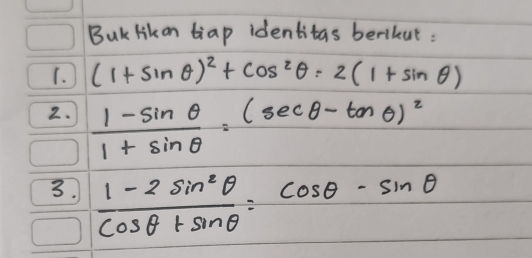 Buktikan tiap identitas berikut :
1. (1 + sin θ)² + cos²θ = 2(1 + sin θ)
2. 1 - sin θ / 1 + sin θ = (sec θ - tan θ)²
3. 1 - 2 sin² θ / cos θ + sin θ = cos θ - sin θ